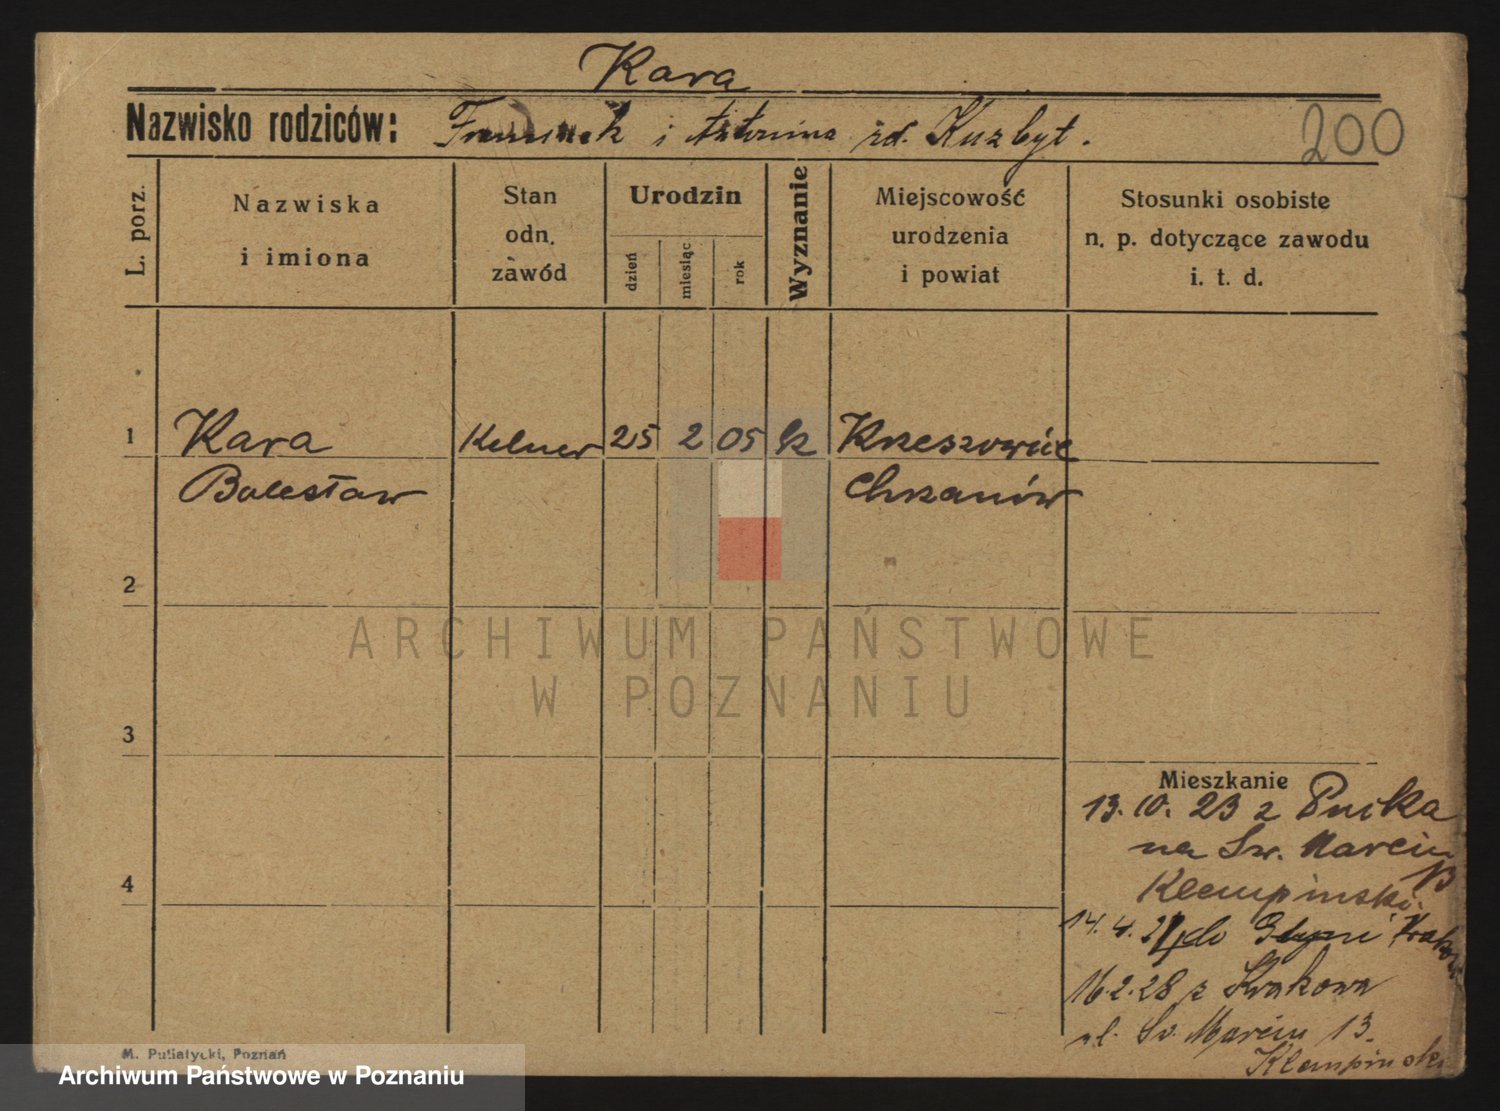 Kara
Nazwisko rodziców: Franciszek i Antonina zd. Kuzbyt.
200
L. porz.
Nazwiska
i imiona
Stan
odn.
zawód
Urodzin
dzień
miesiąc
rok
Wyznanie
Miejscowość
urodzenia
i powiat
Stosunki osobiste
n. p. dotyczące zawodu
i. t. d.
1 Kara Kelner 25 2 05 k Krzeszowice
Bolesław Chrzanów
2
3
4
ARCHIWUM PAŃSTWOWE
W POZNANIU
Mieszkanie
13. 10. 23 z Pucka
na Św. Marcin
13
Klempinski.
14. 4. do Gdyni
16.2.28 z Krakowa
ul. Św. Marcin 13.
Klempinski
M. Putiatycki, Poznań
Archiwum Państwowe w Poznaniu